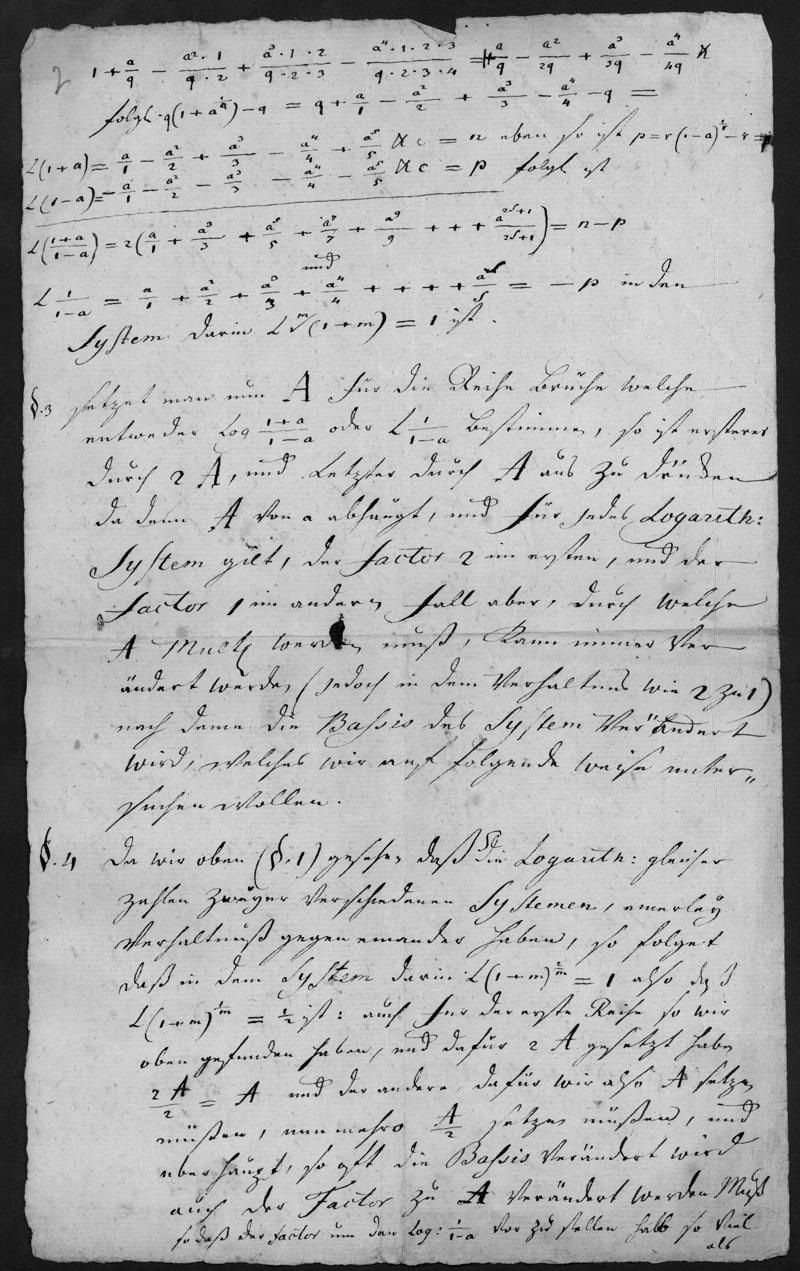 2
1 + a/q − a²·1/q·2 + a³·1·2/q·2·3 − a⁴·1·2·3/q·2·3·4 = a/q − a²/2q + a³/3q − a⁴/4q
folgl. q(1+a) − q = q + a/1 − a²/2 + a³/3 − a⁴/4 − q =
L(1+a) = a/1 − a²/2 + a³/3 − a⁴/4 + a⁵/5 &c = n eben so ist p = r(1−a) − r =
L(1−a) = − a/1 − a²/2 − a³/3 − a⁴/4 − a⁵/5 &c = p folgl ist
L(1+a/1−a) = 2(a/1 + a³/3 + a⁵/5 + a⁷/7 + a⁹/9 + + + a^2s+1/2s+1) = n−p
und
L 1/1−a = a/1 + a²/2 + a³/3 + a⁴/4 + + + + aˢ/s = −p in dem
System darin L (1+m) = 1 ist.
§.3 setzet man nun A für die Reihe Brüche welche
entweder Log 1+a/1−a oder L 1/1−a bestimmen, so ist ersterer
durch 2 A, und Letzter durch A aus zu drücken
da denn A von a abhängt, und für jedes Logarith:
System gilt, der factor 2 im ersten, und der
factor 1 im andern fall aber, durch welche
A Mult werden muß, kann immer Ver
ändert werden (jedoch in dem Verhaltnis wie 2 zu 1)
nach deme die Bassis des System Verändert
wird, welches wir auf folgende weise unter„
suchen wollen.
§.4 Da wir oben (§.1) gesehen daß die Logarith: gleicher
zahlen zweyer Verschiedenen Systemen, einerley
Verhaltnuß gegen einander haben, so folget
daß in dem System darin L(1+m)^2/m = 1 also daß
L(1+m)^1/m = 1/2 ist: auch für der erste Reihe so wir
oben gefunden haben, und dafür 2 A gesetzt haben
2A/2 = A und der andere, dafür wir also A setzen
müßen, nun mehro A/2 setzen müßen, und
überhaupt, so oft die Bassis Verändert wird
auch der Factor zu A Verändert werden Muß
so daß der factor um den Log: 1/1−a vor zu stellen halb so viel
als